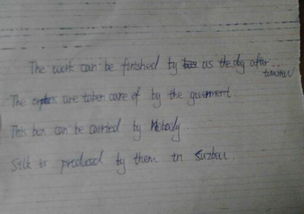 The work can be finished by us the day after tomorrow
The are taken care of by the government.
This box can be carried by Nobody
Silk is produced by them in Suzhou.